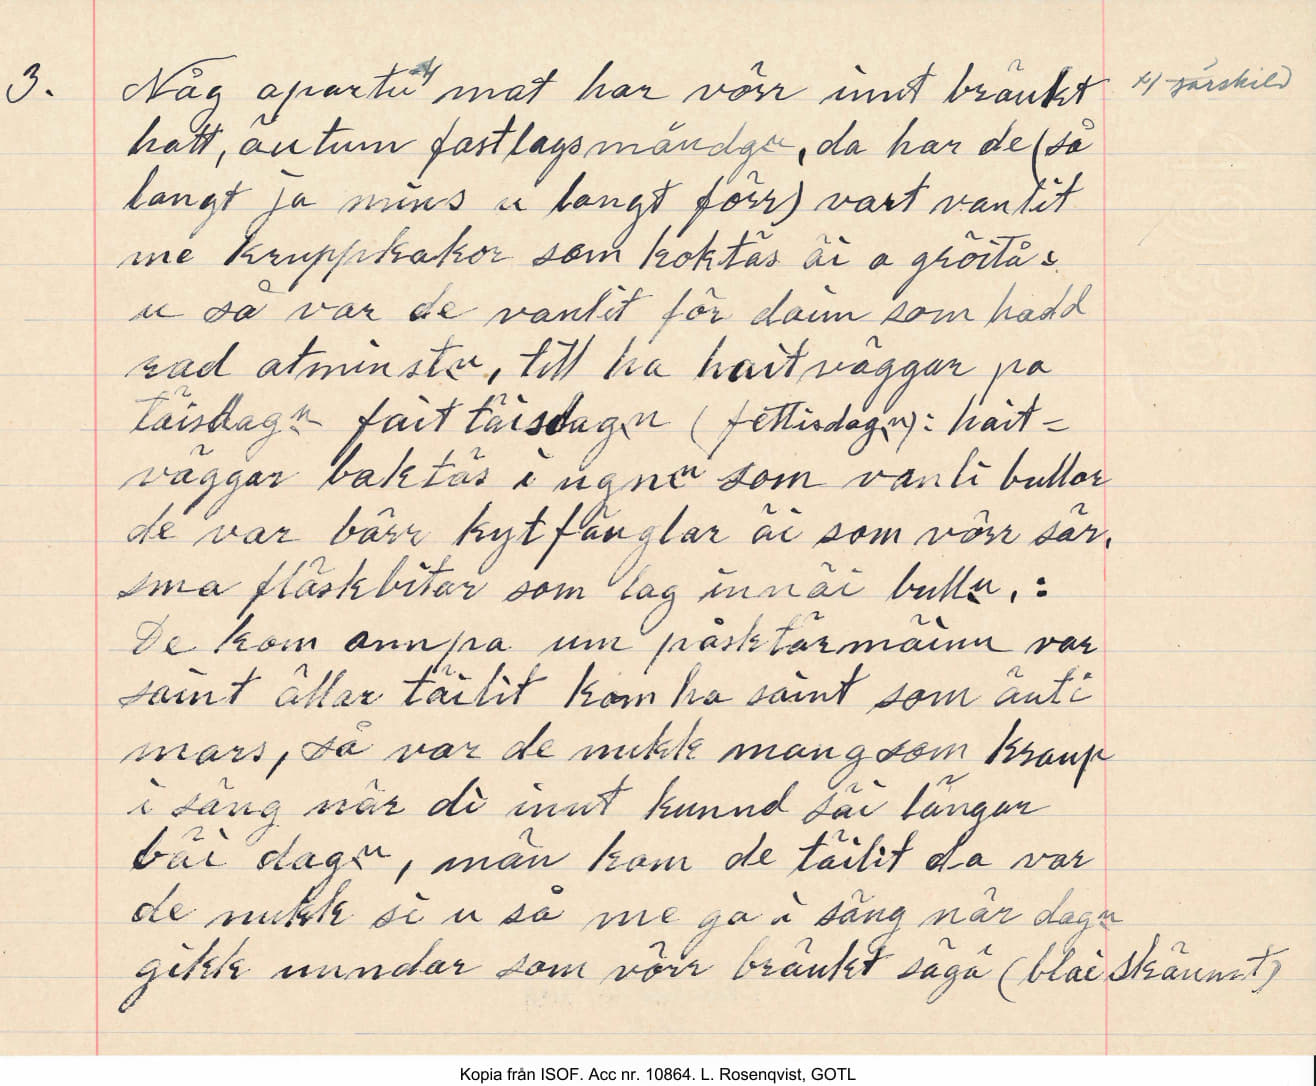 3. Någ apartu x) mat har vörr innt bräukt x) särskild
hatt, äutum fastlagsmåndgn, da har de (så
langt ja mins u langt förr) vart vanlit
me kruppkakor som koktäs äi a gröitå:
u så var de vanlit för daim som hadd
rad atminstn, till ha haitväggar pa
täisdagn fait täisdagn (fettisdagn): hait-
väggar baktäs i ugnen som vanli bullar
de var bärr kytfänglar äi som vörr sär.
sma fläskbitar som lag innäi bulln,:
De kom annpa um påsktärmäinn var
saint ällar täilit kom ha saint som äuti
mars, så var de nukk mang som kraup
i säng när di innt kunnd säi längar
bäi dagn, män kam de täilit da var
de nukk si u så me ga i säng när dagn
gikk unndar som vörr bräukt sägä (blai skäumt)
Kopia från ISOF. Acc nr. 10864. L. Rosenqvist, GOTL